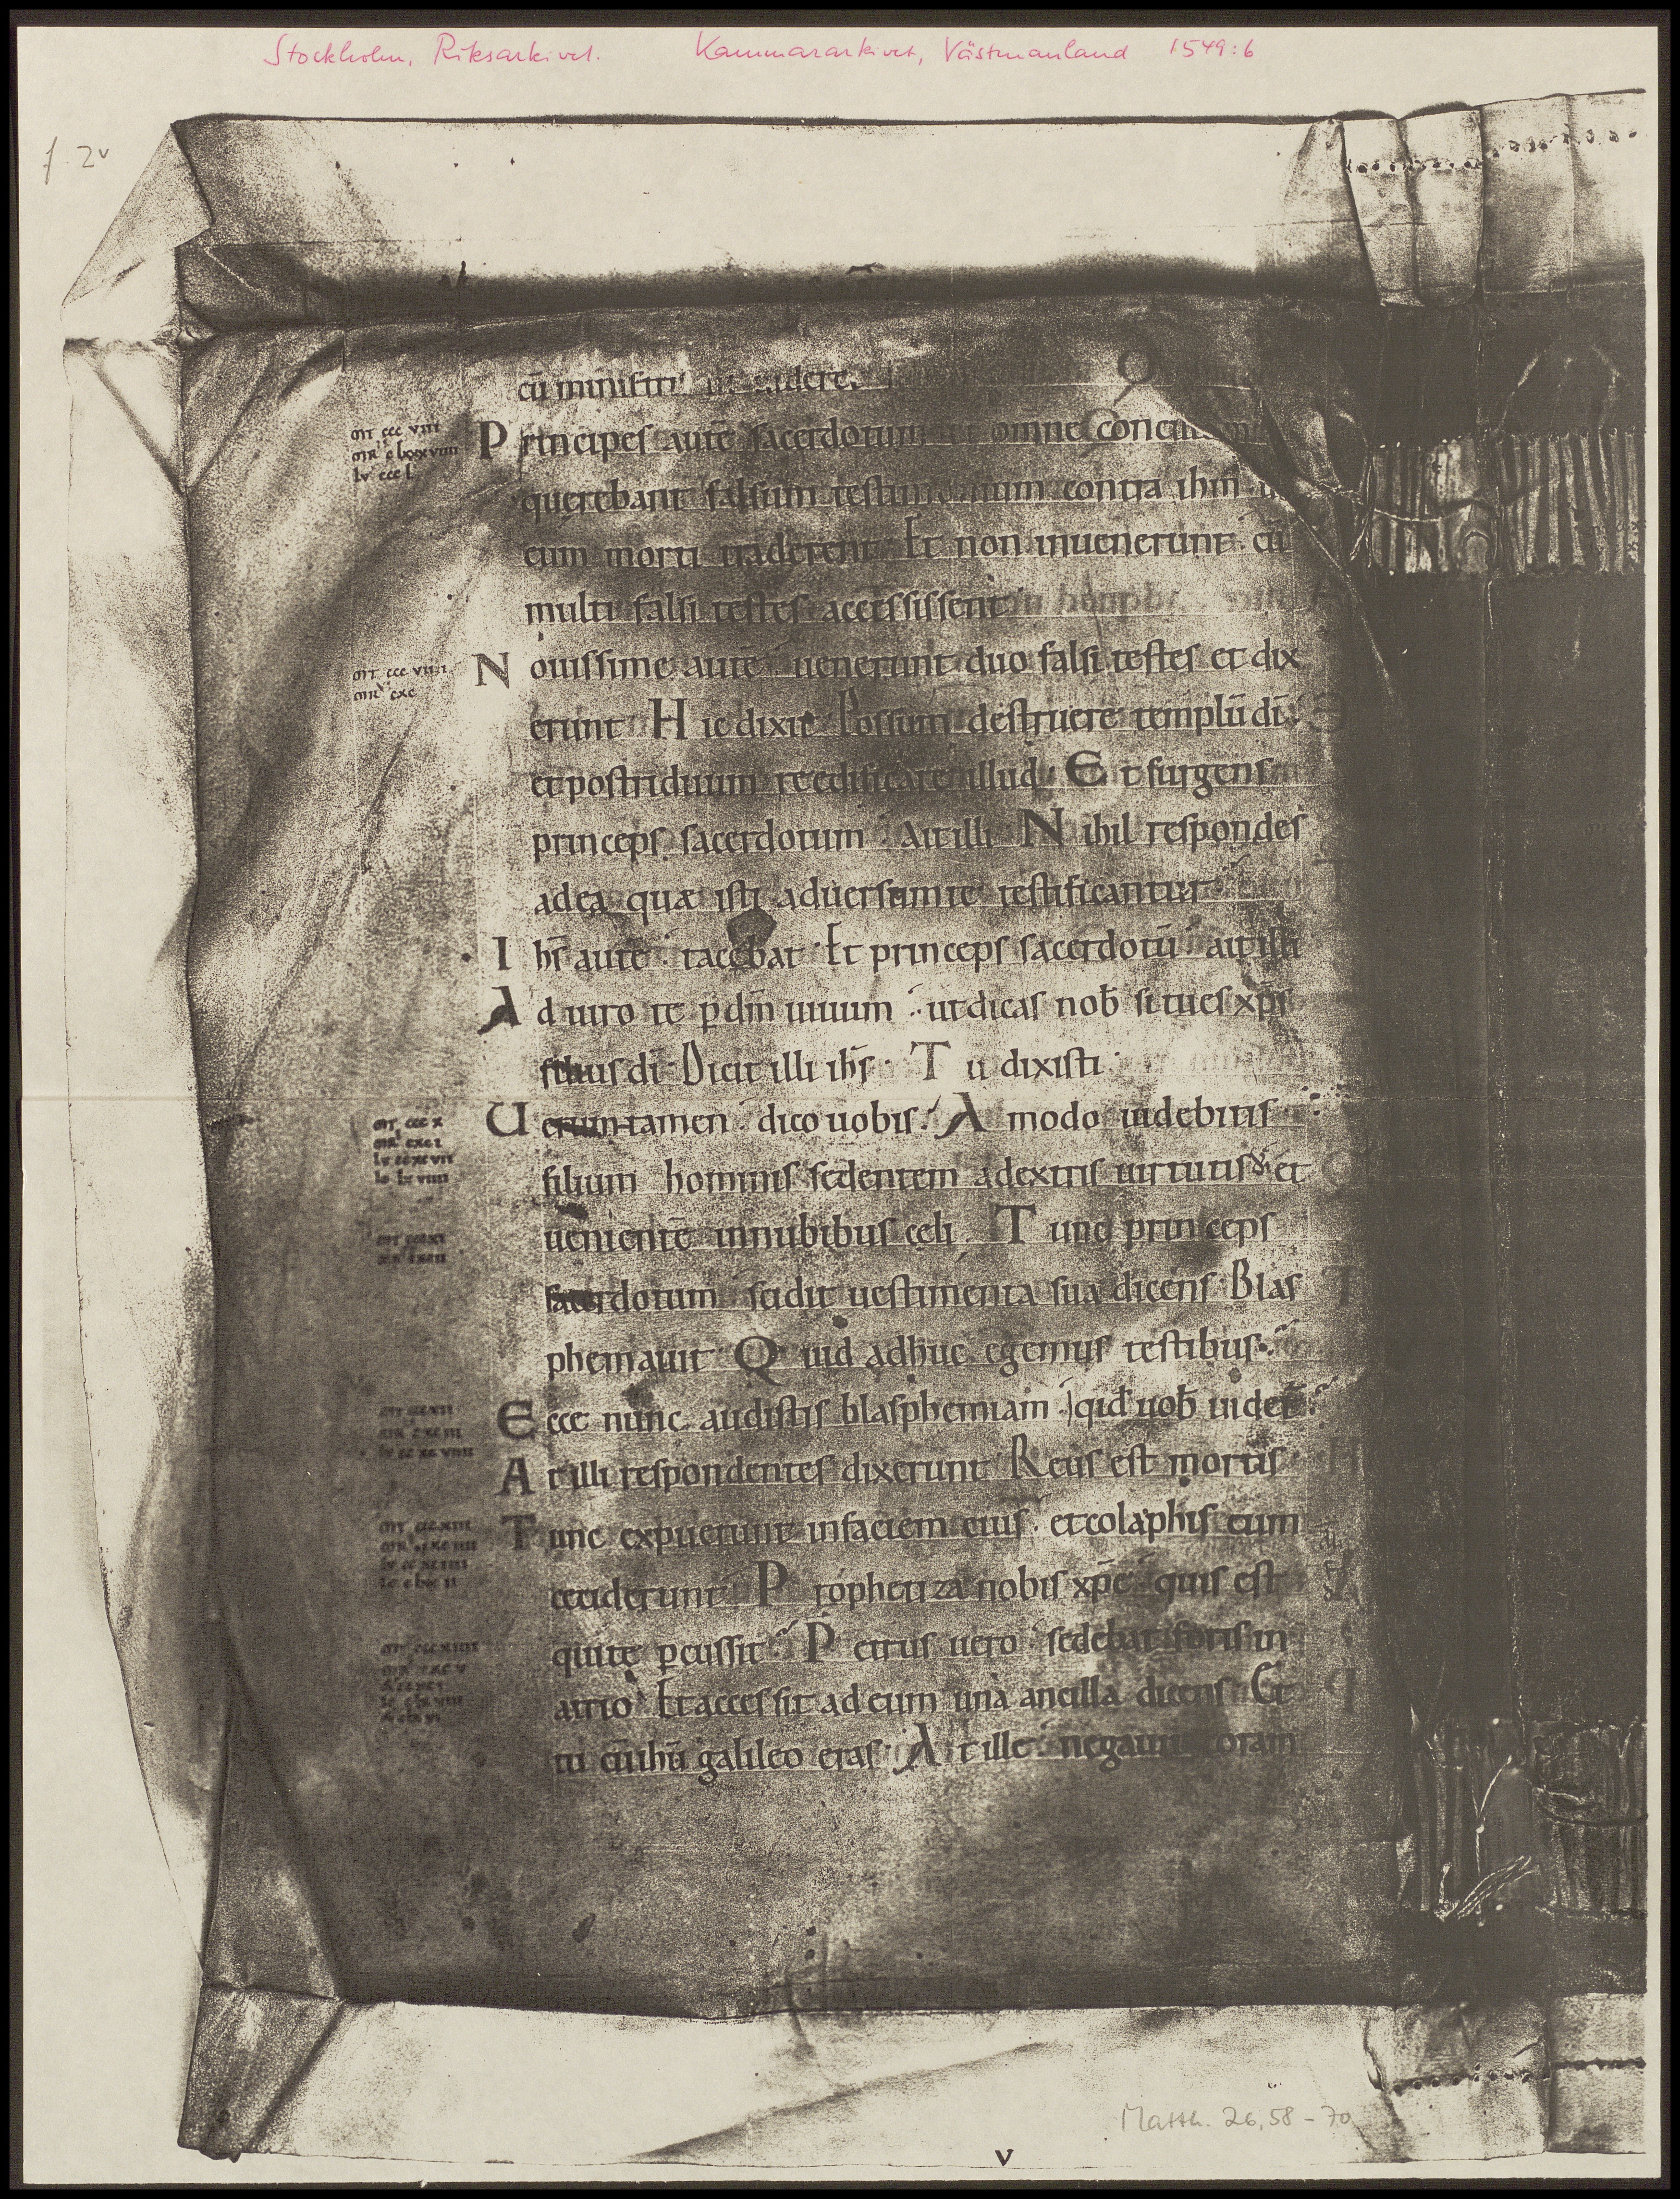 Stockholm, Riksarkivet. Kammararkivet, Västmanland 1549:6
f. 2v
cū ministri uidere
mt ccc viii
mr c lxxxviiii
lv ccc l
Principes autē sacerdotum et omne concilium
querebant falsum testimonium contra ihm
eum morti traderent. Et non inuenerunt. cū
multi falsi testes accessissent
mt ccc viiii
mr cxc
Nouissime autē uenerunt duo falsi testes et dix
erunt Hic dixit Possum destruere templū dī
et post triduum reedificare illud. Et surgens
princeps sacerdotum ait illi Nihil respondes
ad ea quæ isti aduersum te testificantur
Ihs autē tacebat Et princeps sacerdotū ait illi
Adiuro te p dm uiuum ut dicas nob si tu es xps
filius di Dicit illi ihs Tu dixisti
mt ccc x
mr cxci
lv ccxcvii
io lxviiii
Ueruntamen dico uobis. Amodo uidebitis
filium hominis sedentem a dextris uirtutis et
mt cccxi
mr cxcii
uenientē in nubibus celi. Tunc princeps
sacerdotum scidit uestimenta sua dicens Blas
phemauit Quid adhuc egemus testibus
Ecce nunc audistis blasphemiam qid uob uidet
At illi respondentes dixerunt Reus est mortis
Tunc expuerunt in faciem eius et colaphis eum
ceciderunt Prophetiza nobis xpe quis est
qui te pcussit Petrus uero sedebat foris in
atrio Et accessit ad eum una ancilla dicens Et
tu cū ihu galileo eras At ille negauit coram
Matth. 26, 58-70
v